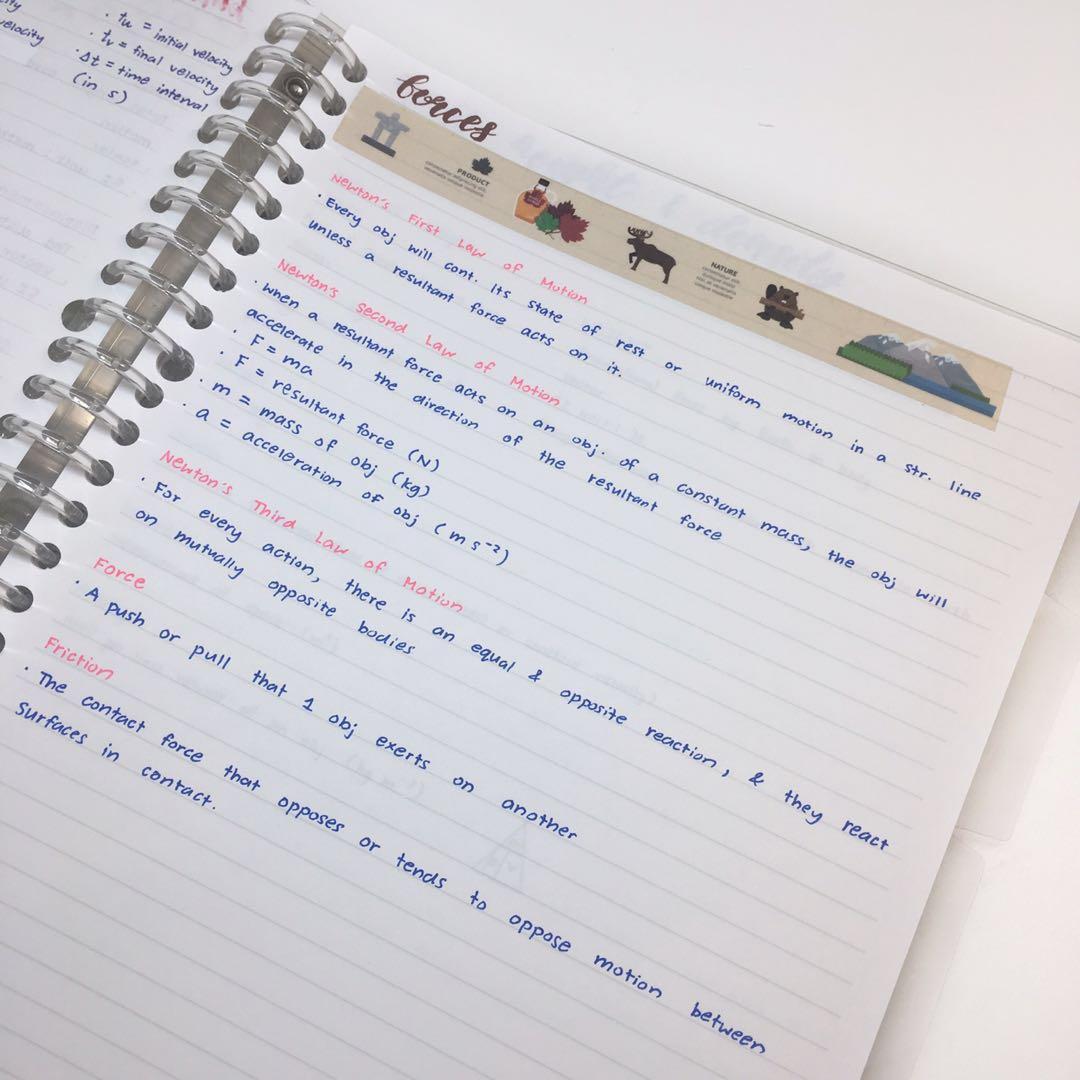 city
velocity
· tu = initial velocity
· tv = final velocity
· Δt = time interval
(in s)
forces
PRODUCT
NATURE
Newton's First Law of Motion
· Every obj will cont. its state of rest or uniform motion in a str. line
unless a resultant force acts on it.
Newton's second Law of Motion
· when a resultant force acts on an obj. of a constant mass, the obj will
accelerate in the direction of the resultant force
· F = ma
· F = resultant force (N)
· m = mass of obj (kg)
· a = acceleration of obj (ms⁻²)
Newton's Third Law of Motion
· For every action, there is an equal & opposite reaction, & they react
on mutually opposite bodies
Force
· A push or pull that 1 obj exerts on another
Friction
· The contact force that opposes or tends to oppose motion between
surfaces in contact.